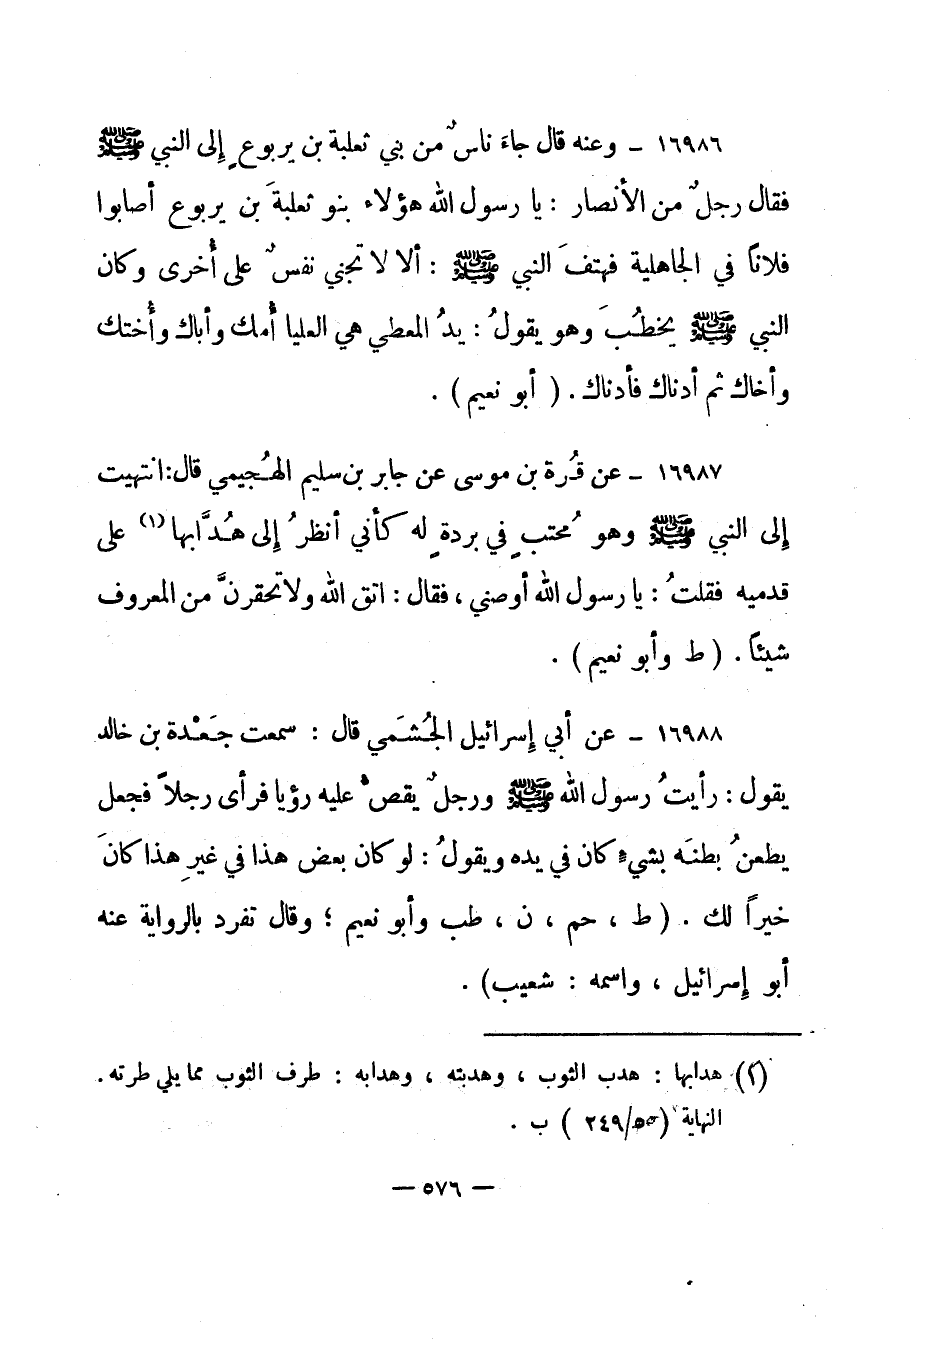 ١٦٩٨٦ - وعنه قال جاءَ ناسٌ من بني ثعلبة بن يربوعٍ إلى النبي ﷺ
فقال رجلٌ من الأنصار : يا رسول الله هؤلاء بنو ثعلبةَ بن يربوع أصابوا
فلاناً في الجاهلية فهتفَ النبي ﷺ : ألا لا تجني نفسٌ على أُخرى وكان
النبي ﷺ يخطُبَ وهو يقولُ : يدُ المعطي هي العليا أُمك وأباك وأُختك
وأخاك ثم أدناك فأدناك . ( أبو نعيم ) .
١٦٩٨٧ - عن قُرة بن موسى عن جابر بن سليم الهُجيمي قال : انتهيت
إلى النبي ﷺ وهو مُحتبٍ في بردةٍ له كأني أنظرُ إلى هُدَّابها (١) على
قدميه فقلتُ : يا رسول الله أوصني ، فقال : اتق الله ولا تحقرنَّ من المعروف
شيئاً . ( ط وأبو نعيم ) .
١٦٩٨٨ - عن أبي إسرائيل الجُشَمي قال : سمعت جَعْدة بن خالد
يقول : رأيتُ رسول الله ﷺ ورجلٌ يقصُّ عليه رؤيا فرأى رجلاً فجعل
يطعنُ بطنَه بشيءٍ كان في يده ويقولُ : لو كان بعض هذا في غيرِ هذا كانَ
خيراً لك . ( ط ، حم ، ن ، طب وأبو نعيم ؛ وقال تفرد بالرواية عنه
أبو إسرائيل ، واسمه : شعيب ) .
(٢) هدابها : هدب الثوب ، وهدبته ، وهدابه : طرف الثوب مما يلي طرته .
النهاية ( /٢٤٩ ) ب .
— ٥٧٦ —